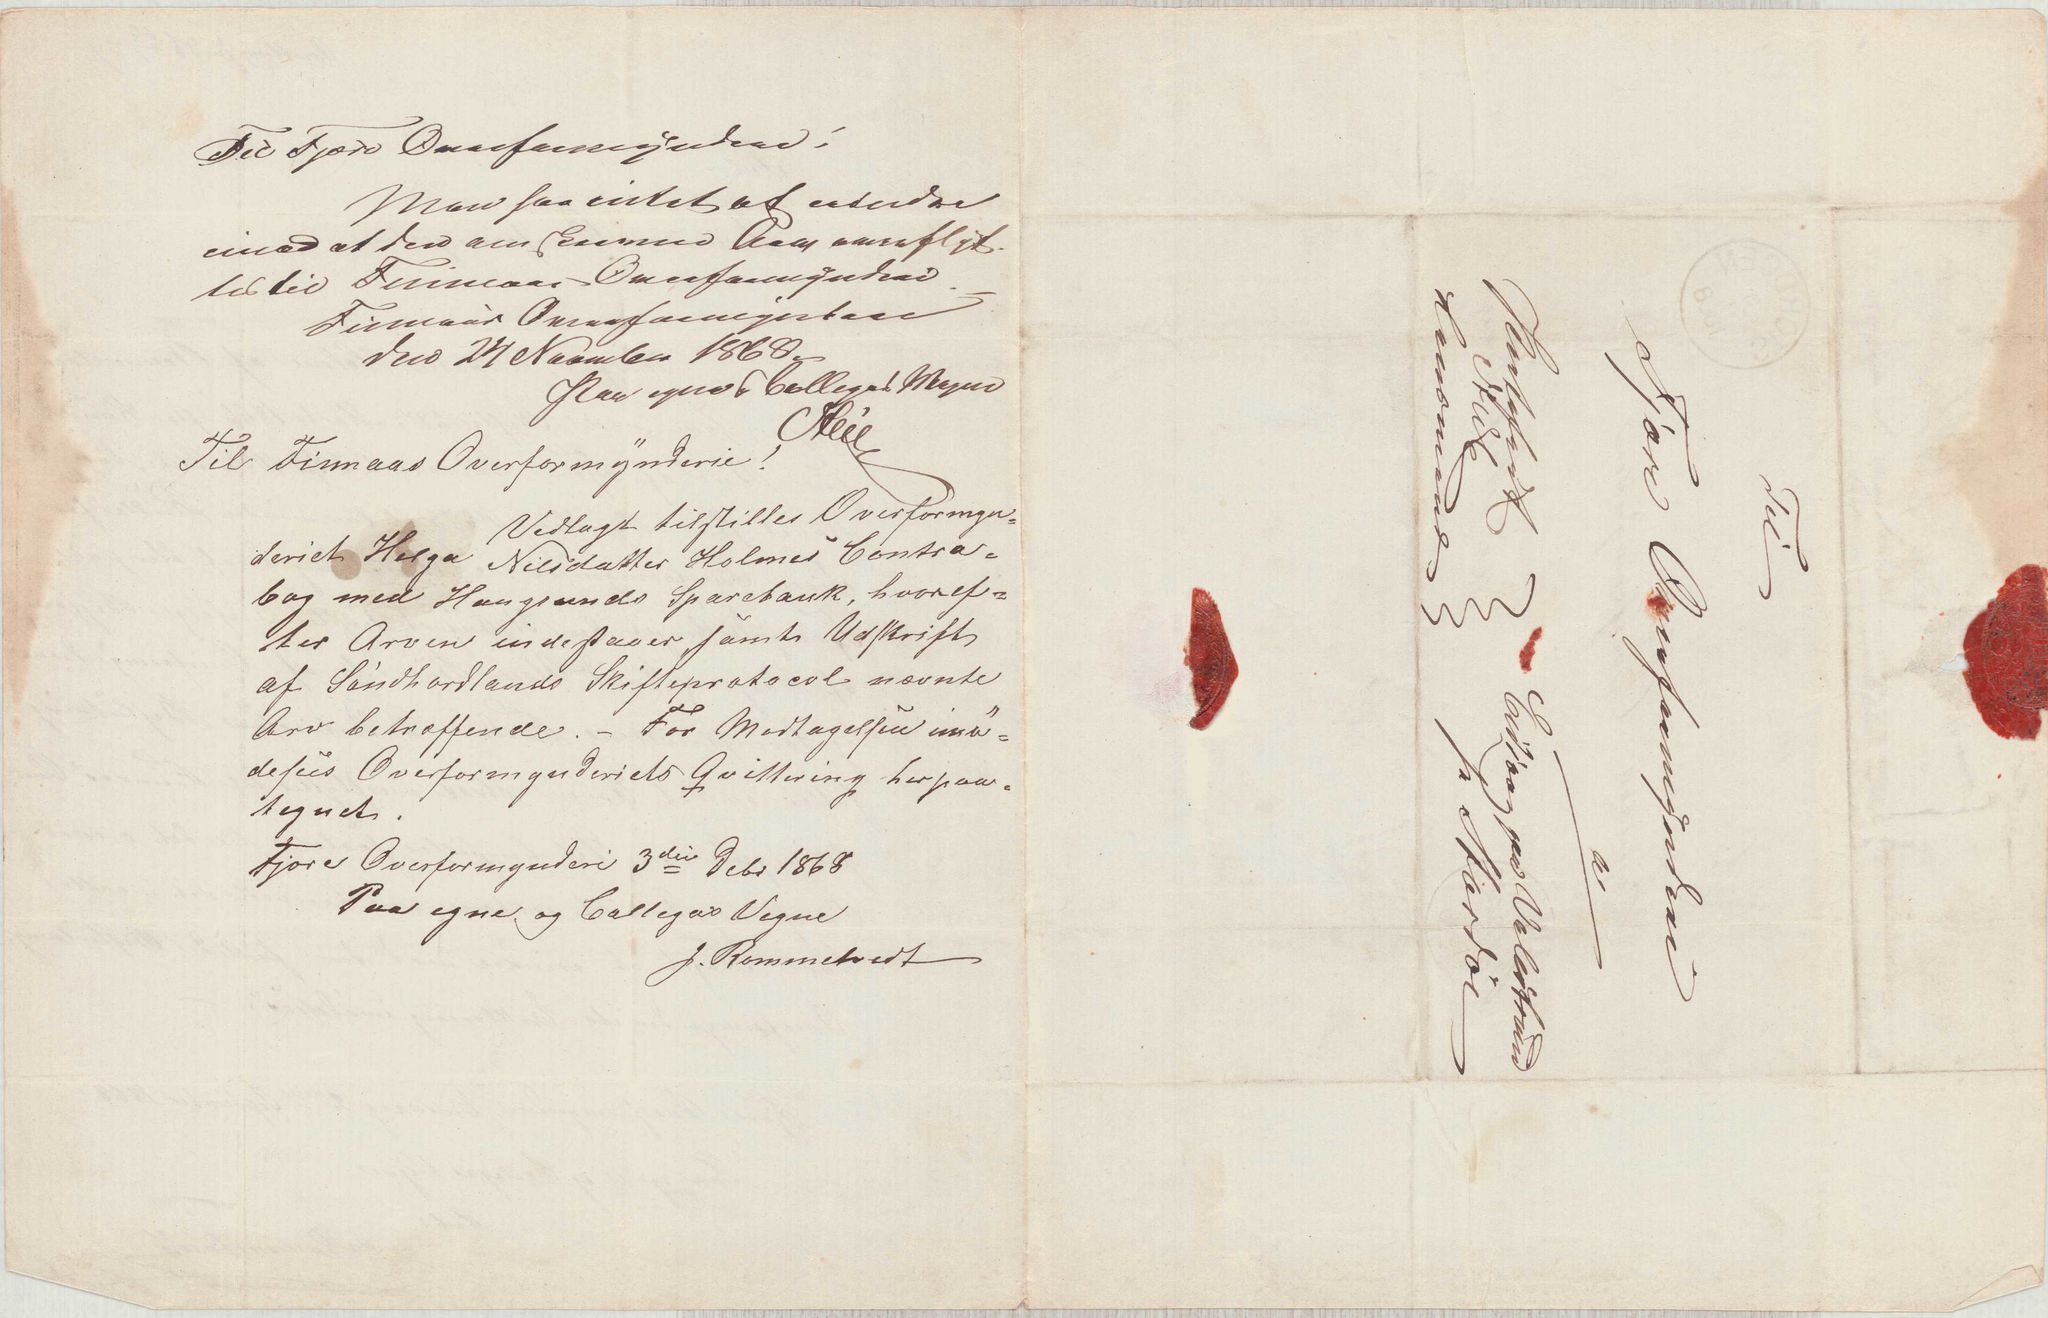 Til Fjære Overformynderi!
Man har intet at erindre
imod at den omskrevne Arv overflyt-
tes til Finnaas Overformynderi.
Finnaas Overformynderi
den 24 November 1868.
Paa egne & Collegas Vegne
Til Finnaas Overformynderie!
Vedlagt tilstilles Overformyn=
deriet Helga Nilsdatter Holmes Contra=
bog med Haugesunds Sparebank, hvoref=
ter Arven indestaaer, samt Udskrift
af Söndhordlands Skifteprotocol nævnte
Arv betræffende. – For Modtagelsen imö=
desees Overformynderiets Qvittering herpaa=
tegnet.
Fjære Overformynderi 3die Debr 1868
Paa egne og Collegas Vegne
J. Rommetvedt
Til
Fjære Overformynderi
a
Eidsvaag pr Valestrand
pr Mardöe